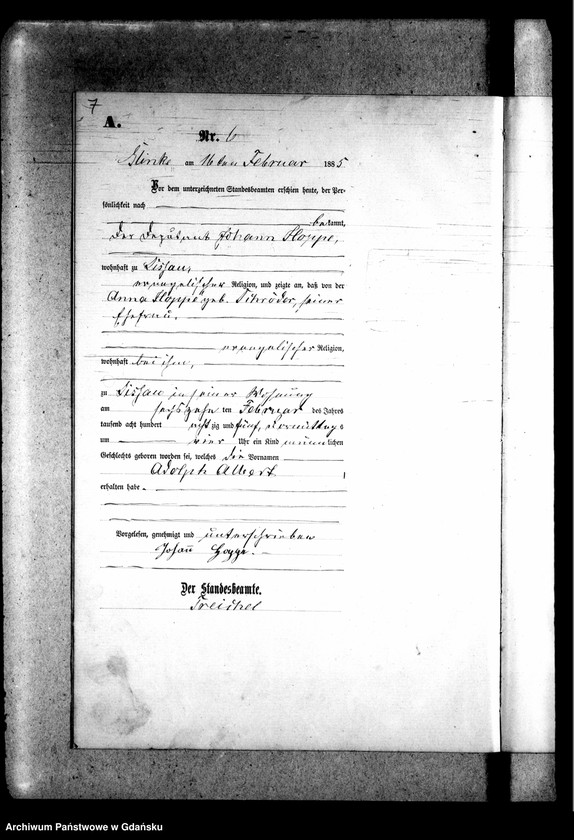 7
A.
Nr. 6
Glinke am 16ten Februar 1885
Vor dem unterzeichneten Standesbeamten erschien heute, der Per-
sönlichkeit nach
bekannt,
der Deputant Johann Hoppe,
wohnhaft zu Lissau,
evangelischer Religion, und zeigte an, daß von der
Anna Hoppe geb. Schröder, seiner
Ehefrau,
evangelischer Religion,
wohnhaft bei ihm,
zu Lissau in seiner Wohnung
am sechszehn ten Februar des Jahres
tausend acht hundert acht zig und fünf, vormittags
um vier Uhr ein Kind männlichen
Geschlechts geboren worden sei, welches die Vornamen
Adolph Albert
erhalten habe.
Vorgelesen, genehmigt und unterschrieben
Johann Hoppe.
Der Standesbeamte.
Treichel
Archiwum Państwowe w Gdańsku